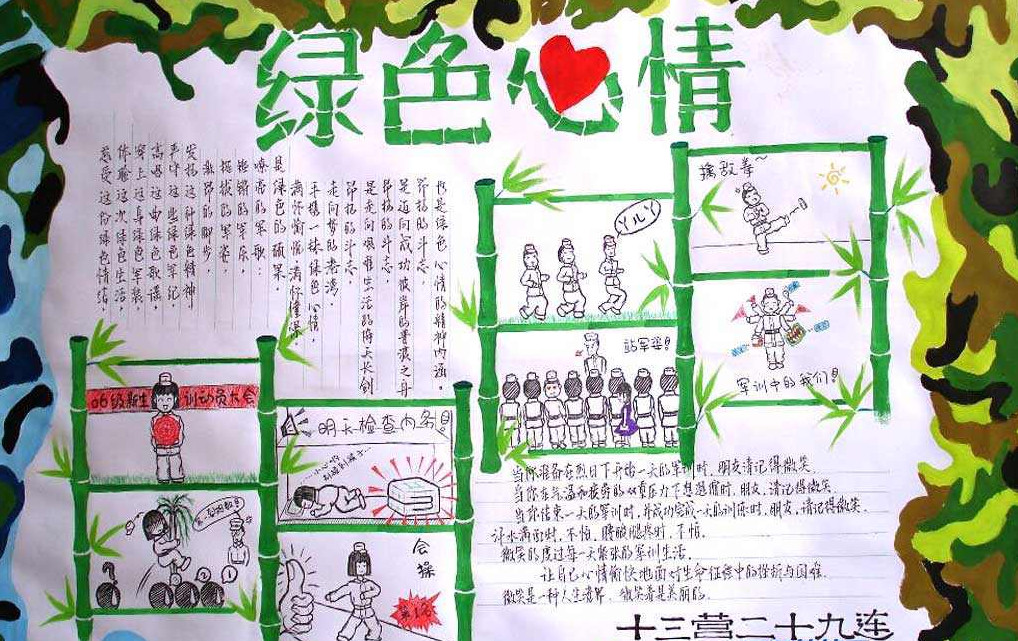 绿色心情
感受这份绿色情结，
体验这次绿色生活，
穿上这身绿色军装
高唱这曲绿色歌谣
严守这些绿色军纪
发扬这种绿色精神
激昂的脚步，
挺拔的军姿，
嘹亮的军歌：
是绿色的硕果，
满怀愉悦满怀憧憬，
手携一抹绿色心情，
走向梦的港湾
昂扬的斗志，
是走向艰难生活的海天长剑
昂扬的斗志，
是迈向成功彼岸的普渡之舟
昂扬的斗志，
也是绿色心情的精神内涵。
丫儿丫
擒敌拳~
站军姿！
军训中的我们！
06级新生 训动员大会
明天检查内务！
会操
当你准备在烈日下开始一天的军训时，朋友请记得微笑．
当你在气温和疲劳的双重压力下想退缩时，朋友，请记得微笑．
当你结束一天的军训时，并成功完成一天的训练时，朋友，请记得微笑．
汗水满面时，不怕，腰酸腿疼时，不怕．
微笑的度过每一天紧张的军训生活．
让自己心情愉快地面对生命征途中的挫折与困难．
微笑是一种人生境界，微笑着是美丽的．
十三营二十九连